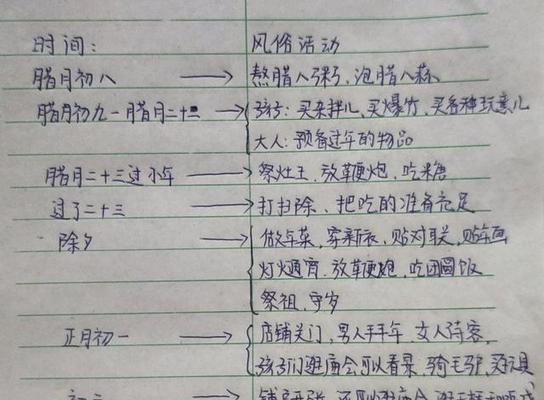 时间: 风俗活动
腊月初八 → 熬腊八粥、泡腊八蒜
腊月初九-腊月二十三 → 孩子: 买杂拌儿、买爆竹、买各种玩意儿
大人: 预备过年的物品
腊月二十三过小年 → 祭灶王、放鞭炮、吃糖
过了二十三 → 打扫除、把吃的准备充足
除夕 → 做年菜, 穿新衣, 贴对联, 贴年画
灯火通宵、放鞭炮、吃团圆饭
祭祖、守岁
正月初一 → 店铺关门, 男人拜年, 女人待客,
孩子们逛庙会可以看景, 骑毛驴, 买玩具
初二 → 铺